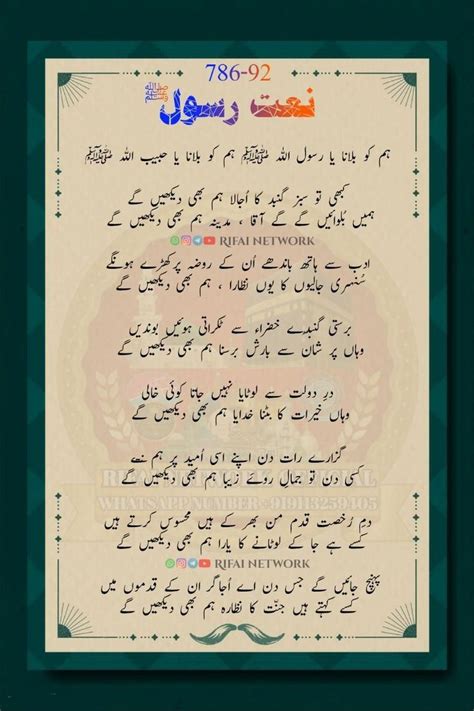 786-92
نعت رسول ﷺ
ہم کو بلانا یا رسول اللہ ﷺ ہم کو بلانا یا حبیب اللہ ﷺ
کبھی تو سبز گنبد کا اُجالا ہم بھی دیکھیں گے
ہمیں بُلوائیں گے گے آقا ، مدینہ ہم بھی دیکھیں گے
RIFAI NETWORK
ادب سے ہاتھ باندھے اُن کے روضہ پر کھڑے ہونگے
سُنہری جالیوں کا یوں نظارا ، ہم بھی دیکھیں گے
برستی گنبدِ خضراء سے ٹکراتی ہوئیں بوندیں
وہاں پر شان سے بارش برسنا ہم بھی دیکھیں گے
درِ دولت سے لوٹایا نہیں جاتا کوئی خالی
وہاں خیرات کا بٹنا خدایا ہم بھی دیکھیں گے
گزارے رات دن اپنے اسی اُمید پر ہم نے
کسی دن تو جمالِ روئے زیبا ہم بھی دیکھیں گے
WHATSAPP NUMBER
دمِ رُخصت قدم من بھر کے ہیں محسوس کرتے ہیں
کسے ہے جا کے لوٹانے کا یارا ہم بھی دیکھیں گے
RIFAI NETWORK
پہنچ جائیں گے جس دن اے اُجاگر ان کے قدموں میں
کسے کہتے ہیں جنّت کا نظارہ ہم بھی دیکھیں گے